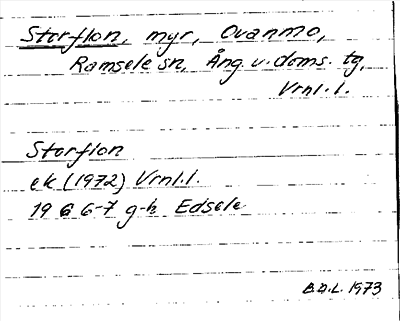 Storflon, myr, Ovanmo,
Ramsele sn, Ång. v. doms. tg,
Vrnl.l.
Storflon
ek (1972) Vrnl.l.
19 G 6-7 g-h Edsele
B.D.L. 1973